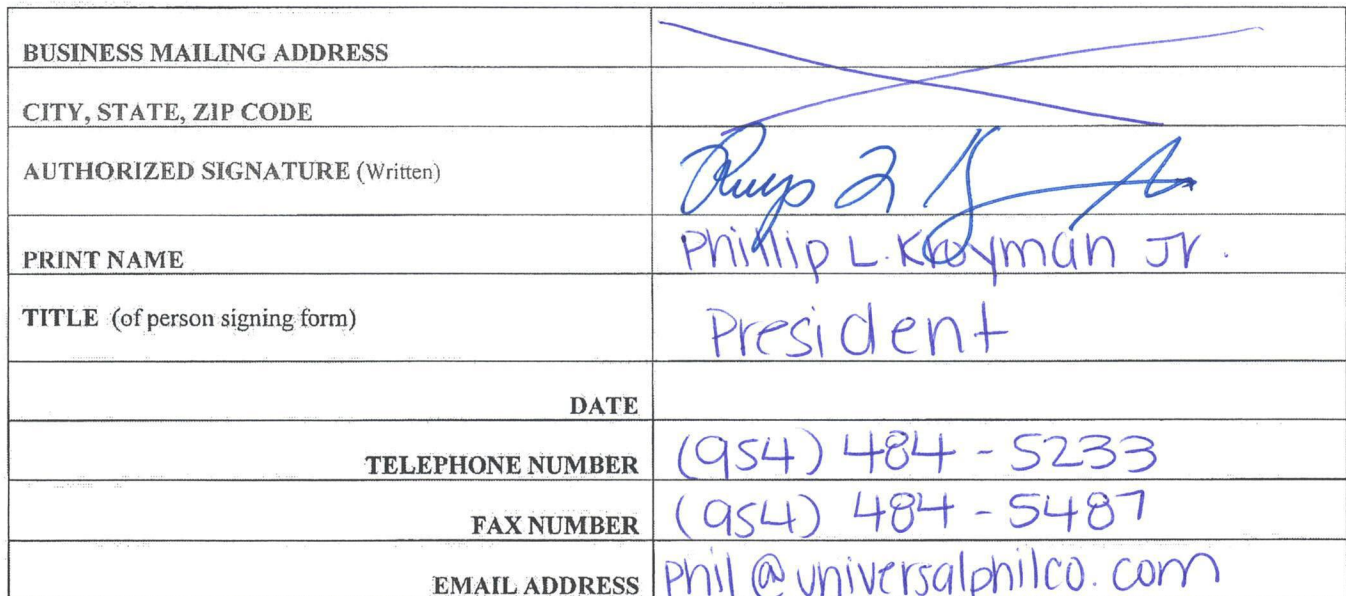 BUSINESS MAILING ADDRESS
CITY, STATE, ZIP CODE
AUTHORIZED SIGNATURE (Written)
PRINT NAME Phillip L. Krayman Jr.
TITLE (of person signing form) President
DATE
TELEPHONE NUMBER (954) 484-5233
FAX NUMBER (954) 484-5487
EMAIL ADDRESS phil@universalphilco.com